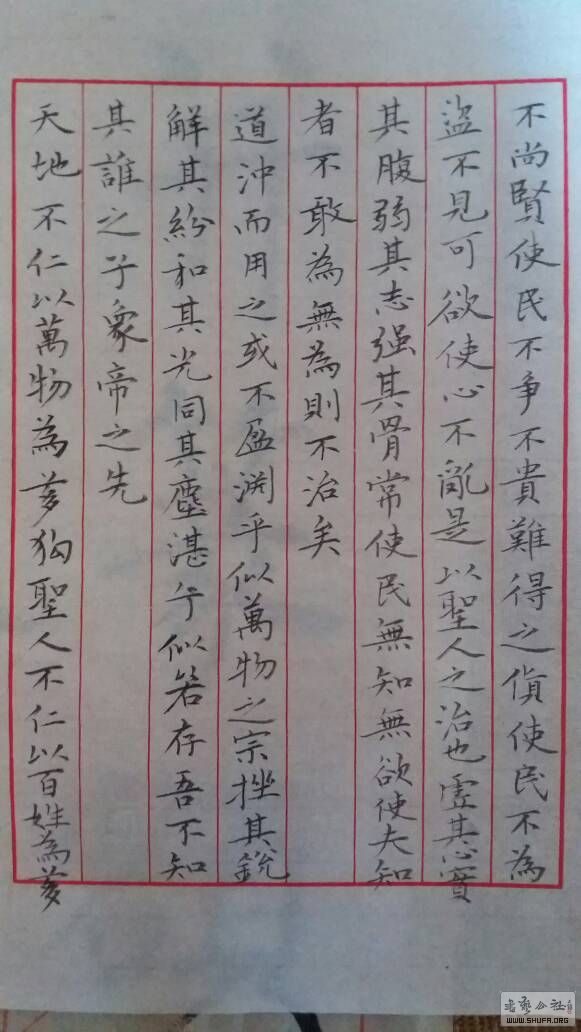 不尚賢使民不爭不貴難得之貨使民不為
盜不見可欲使心不亂是以聖人之治也虛其心實
其腹弱其志强其骨常使民無知無欲使夫知
者不敢為無為則不治矣
道沖而用之或不盈渊乎似萬物之宗挫其銳
解其紛和其光同其塵湛乎似若存吾不知
其誰之子象帝之先
天地不仁以萬物為芻狗聖人不仁以百姓為芻
書藝公社
WWW.SHUFA.ORG